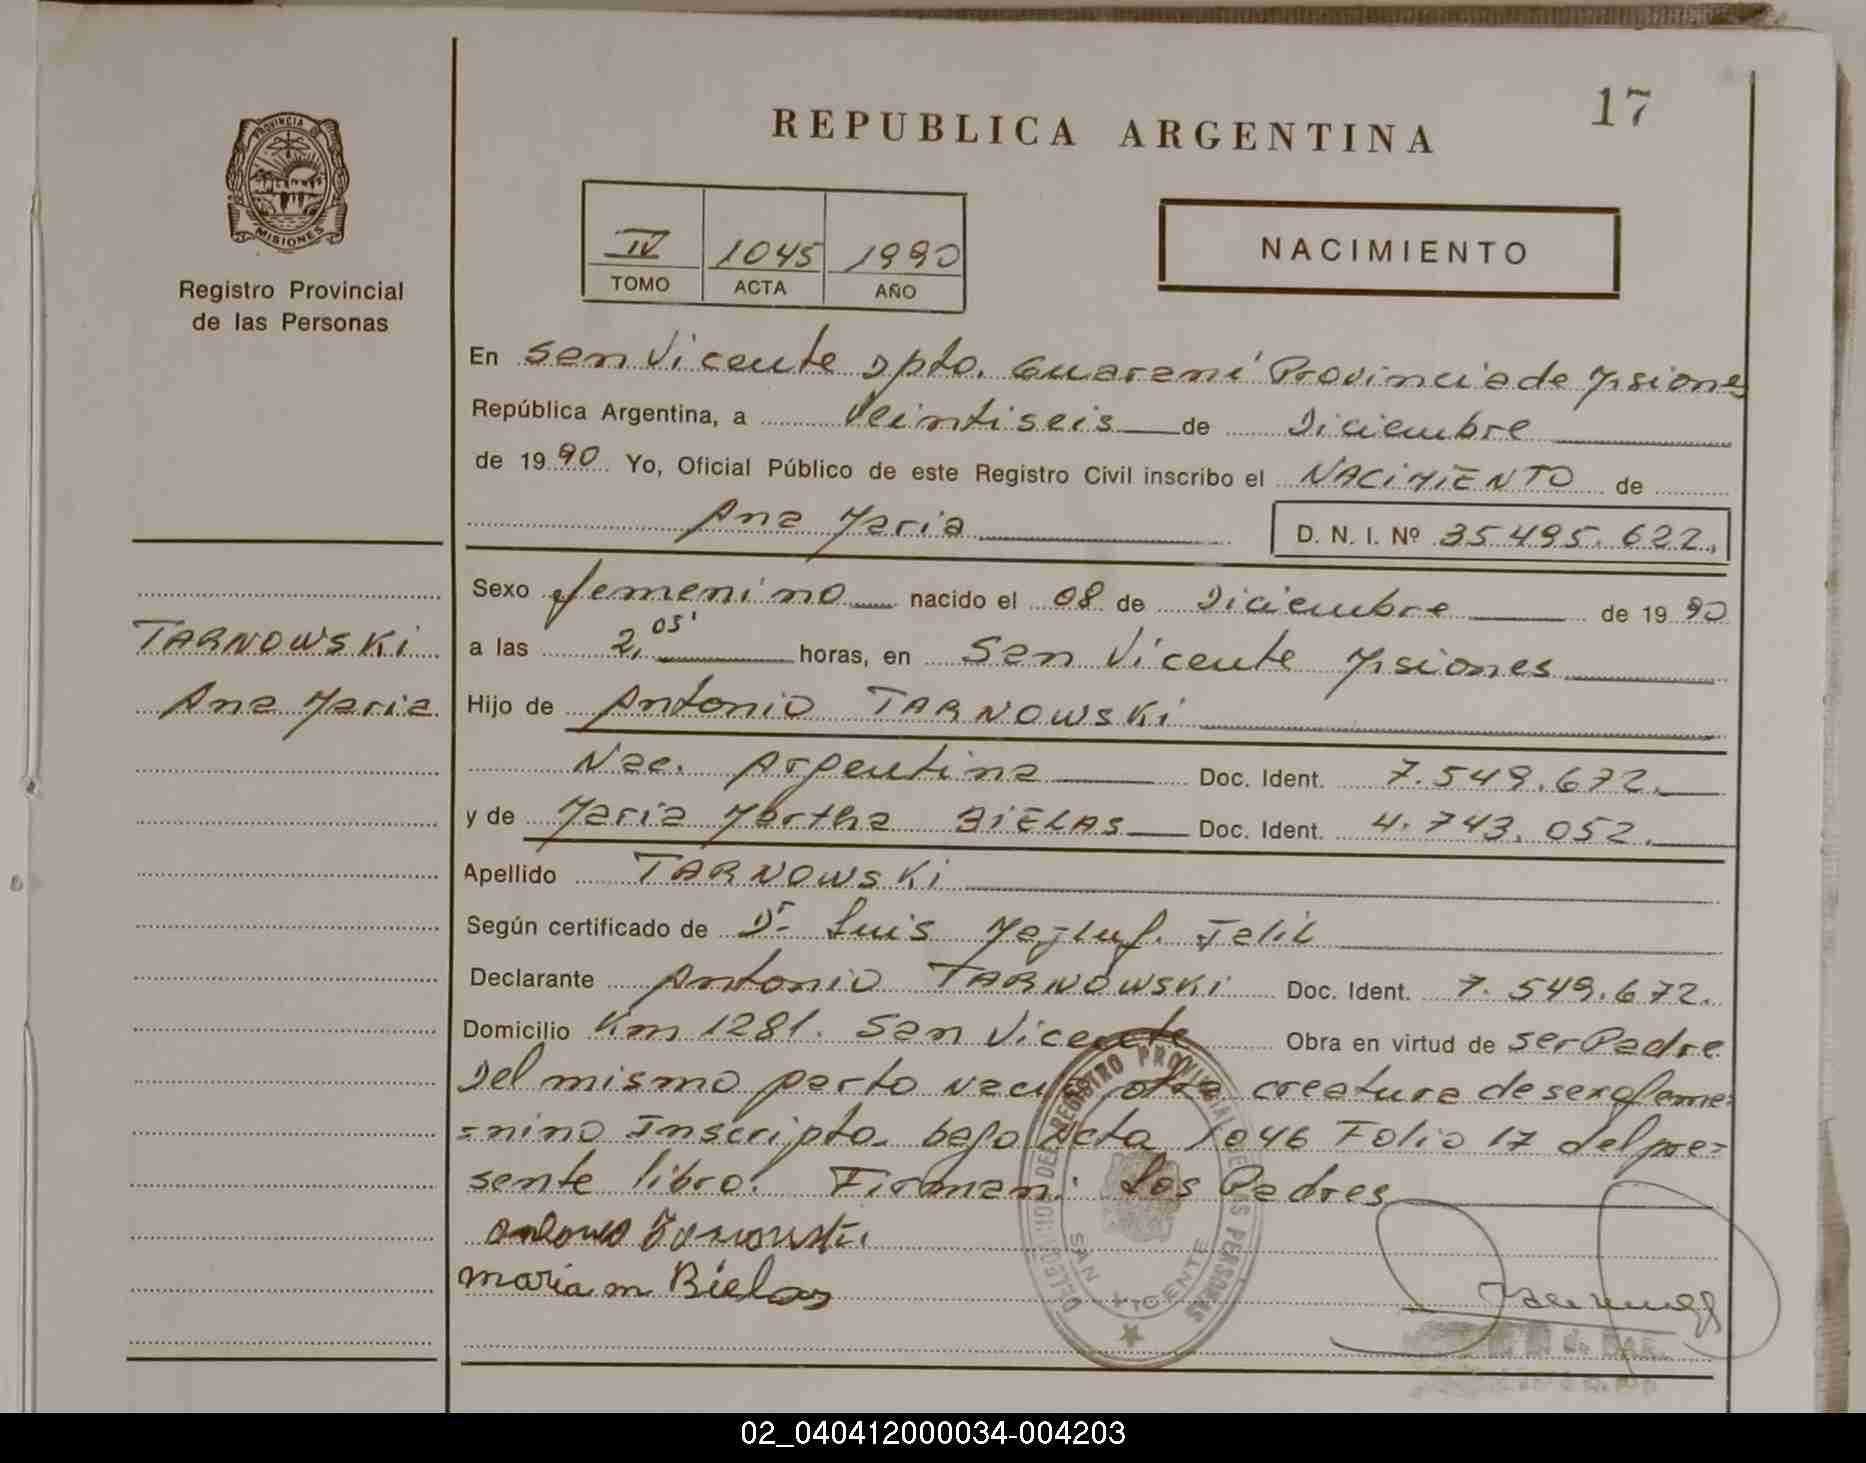 17
REPUBLICA ARGENTINA
PROVINCIA DE
MISIONES
Registro Provincial
de las Personas
IV 1045 1990
TOMO ACTA AÑO
NACIMIENTO
En San Vicente Dpto. Guaraní Provincia de Misiones
República Argentina, a veintiseis de Diciembre
de 1990 Yo, Oficial Público de este Registro Civil inscribo el NACIMIENTO de
Ana Maria D. N. I. Nº 35.495.622.
Sexo femenino nacido el 08 de Diciembre de 1990
TARNOWSKI
a las 2,05' horas, en San Vicente Misiones
Ana Maria
Hijo de Antonio TARNOWSKI
Nac. Argentina Doc. Ident. 7.549.672.
y de Maria Martha BIELAS Doc. Ident. 4.743.052.
Apellido TARNOWSKI
Según certificado de Dr. Luis Felix
Declarante Antonio TARNOWSKI Doc. Ident. 7.549.672.
Domicilio Km 1281. San Vicente Obra en virtud de ser Padre
Del mismo parto nació otra creatura de sexo feme=
=nino Inscripta bajo Acta 1046 Folio 17 del pre=
sente libro. Firman: Los Padres
maria m Bielas
DELEGACION DEL REGISTRO PROVINCIAL DE LAS PERSONAS
SAN VICENTE
02_040412000034-004203